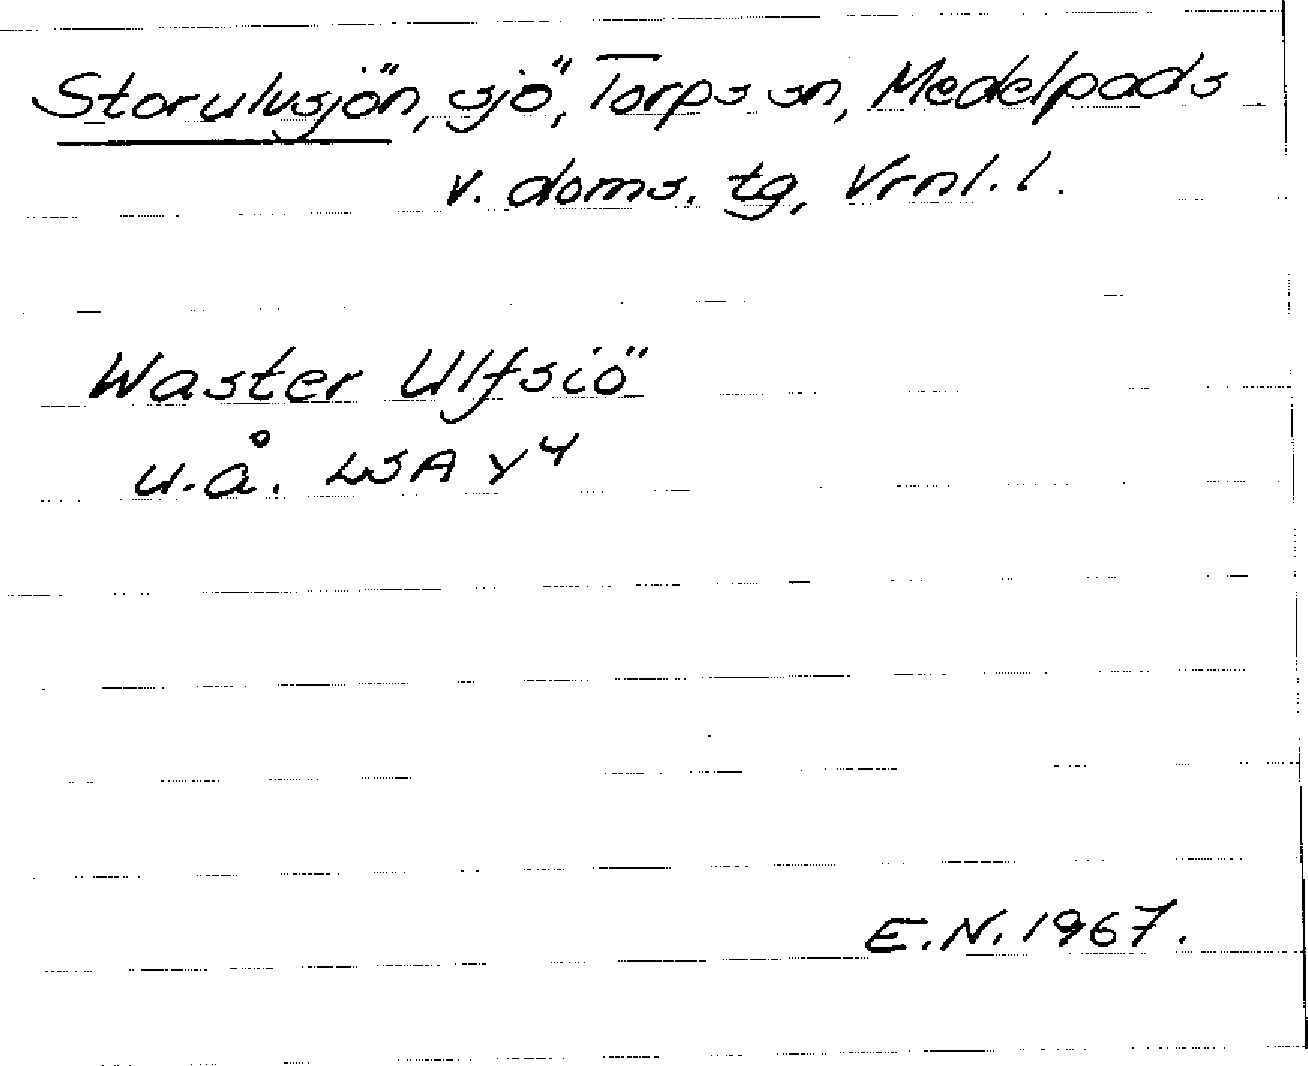 Storulvsjön, sjö, Torps sn, Medelpads
v. doms. tg, Vrnl. l.
Waster Ulfsiö
u.å. LSA Y4
E.N. 1967.